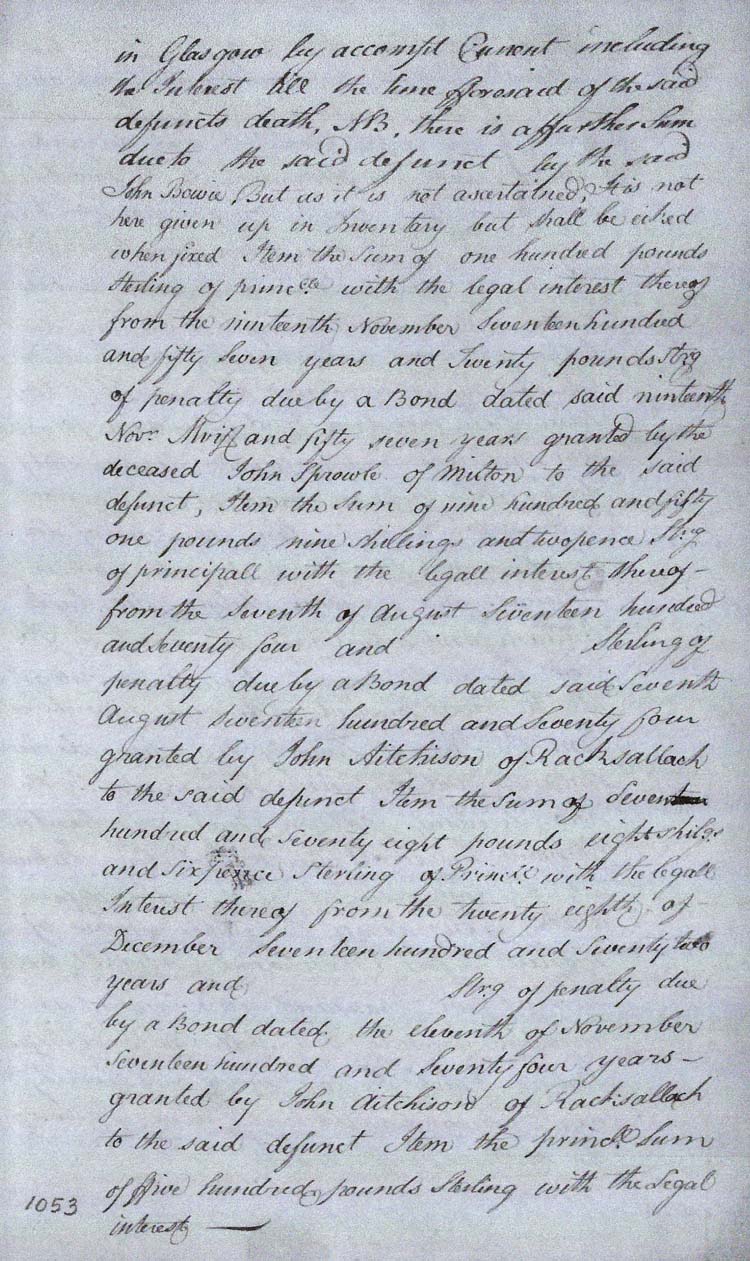 in Glasgow by accompt Current including
the Interest till the time fforesaid of the said
defuncts death, NB. there is a ffurther Sum
due to the said defunct by the said
John Bowie But as it is not ascertained, It is not
here given up in Inventary but shall be eiked
when fixed Item the Sum of one hundred pounds
sterling of princle. with the legal interest thereof
from the nineteenth November Seventeen hundred
and fifty Seven years and Twenty pounds Strg
of penalty due by a Bond dated said ninteenth
Novr. and fifty seven years granted by the
deceased John Sprowle of Milton to the said
defunct, Item the Sum of nine hundred and fifty
one pounds nine shillings and twopence Strg
of principall with the legall interest thereof-
from the Seventh of August Seventeen hundred
and Seventy four and Sterling of
penalty due by a Bond dated said Seventh
August Seventeen hundred and Seventy four
granted by John Aitchison of Racksallach
to the said defunct Item the Sum of Seven
hundred and Seventy eight pounds eight shilgs
and Sixpence Sterling of Princle. with the legall
Interest thereof from the twenty eighth of-
December Seventeen hundred and Seventy two
years and Strg of penalty due
by a Bond dated the eleventh of November
Seventeen hundred and Seventy four years-
granted by John Aitchison of Racksallach
to the said defunct Item the princll. Sum
of ffive hundred pounds Sterling with the Legal
1053
interest —